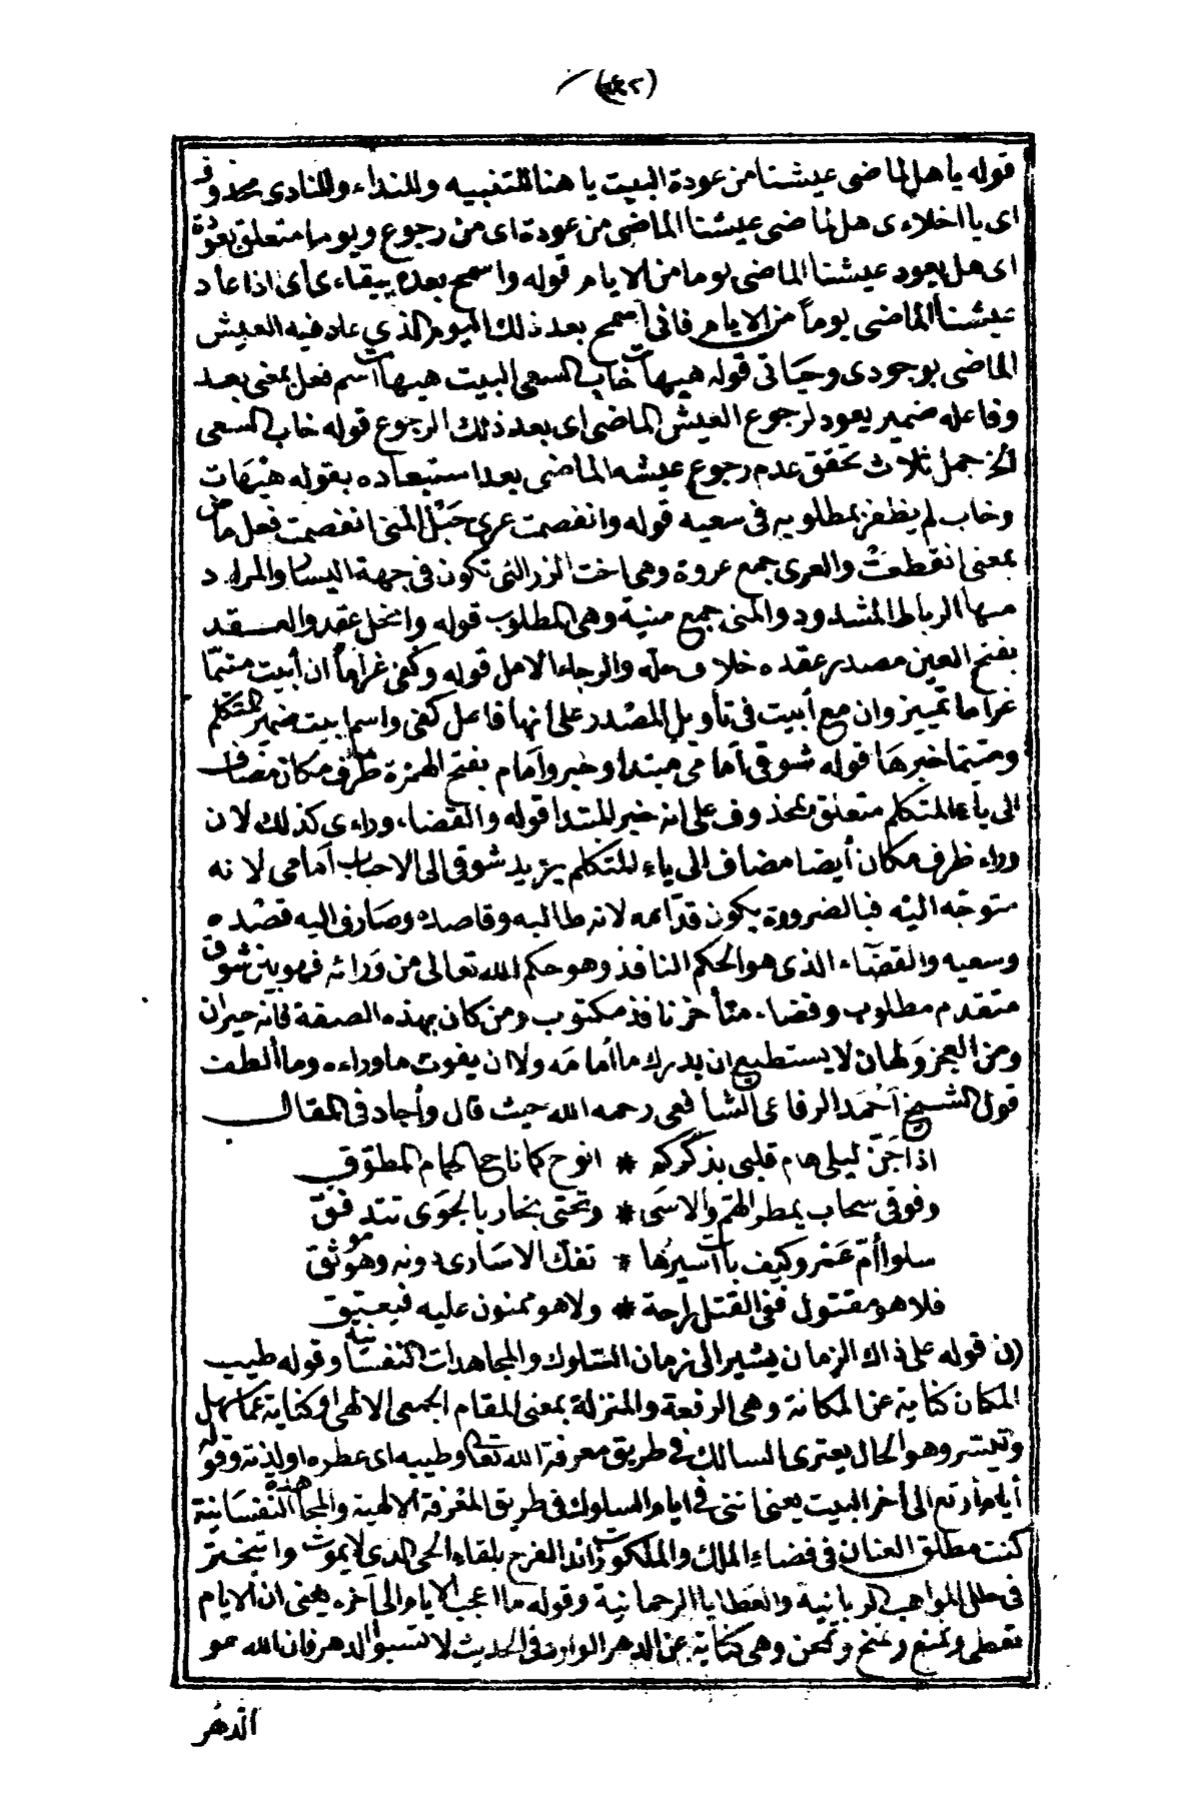 قوله يا هل لماضى عيشنا من عودة البيت يا هنا للتنبيه وللنداء وللنادى محذوف
اى يا اخلاءى هل لماضى عيشنا الماضى من عودة اى من رجوع ويوما متعلق بعودة
اى هل يعود عيشنا الماضى يوما من الايام قوله واسمح بعده ببقاءى أى اذا عاد
عيشنا الماضى يوماً من الايام فانى أسمح بعد ذلك اليوم الذي عاد فيه العيش
الماضى بوجودى وحياتى قوله هيهات خاب السعى البيت هيهات اسم فعل بمعنى بعد
وفاعله ضمير يعود لرجوع العيش الماضى اى بعد ذلك الرجوع قوله خاب السعى
الخ جمل ثلاث تحقق عدم رجوع عيشه الماضى بعد استبعاده بقوله هيهات
وخاب لم يظفر بمطلوبه فى سعيه قوله وانفصمت عرى حبل المنى انفصمت فعل ماض
بمعنى انقطعت والعرى جمع عروة وهى اخت الزر التى تكون فى جهة اليسار والمراد
منها الرباط المشدود والمنى جمع منية وهى المطلوب قوله وانحل عقد والعقد
بفتح العين مصدر عقده خلاف حله والرجاء الامل قوله وكفى غراماً ان أبيت متيما
غراما تمييز وان مع أبيت فى تأويل المصدر على انها فاعل كفى واسم ابيت ضمير المتكلم
ومتيما خبرها قوله شوقى أمامى مبتدا وخبر وامام بفتح الهمزة ظرف مكان مضاف
الى ياء المتكلم متعلق بمحذوف على انه خبر المبتدا قوله والقضاء وراءى كذلك لان
وراء ظرف مكان أيضا مضاف الى ياء المتكلم يريد شوقى الى الاحباب أمامى لانه
متوجه اليه فبالضرورة يكون قدامه لانه طالبه وقاصده وصارف اليه قصده
وسعيه والقضاء الذى هو الحكم النافذ وهو حكم الله تعالى من ورائه فهو بين شوق
متقدم مطلوب وقضاء متأخر نافذ مكتوب ومن كان بهذه الصفة فانه حيران
ومن العجز ولهان لا يستطيع ان يدرك ما أمامه ولا ان يفوت ما وراءه وما ألطف
قول الشيخ أحمد الرفاعى الشافعى رحمه الله حيث قال وأجاد فى المقال
اذا جن ليلى هام قلبى بذكركم * انوح كما ناح الحمام المطوق
وفوقى سحاب يمطر الهم والاسى * وتحتى بخار بالجوى تتدفق
سلوا أم عمرو كيف بات أسيرها * تفك الاسارى دونه وهو موثق
فلا هو مقتول ففى القتل راحة * ولا هو ممنون عليه فيعتق
(ن قوله على ذاك الزمان يشير الى زمان السلوك والمجاهدات النفسانية وقوله طيب
المكان كناية عن المكانة وهى الرفعة والمنزلة بمعنى المقام الجمعى الالهى او كناية عما سهل
وتيسر وهو الحال يعترى السالك فى طريق معرفة الله تعالى وطيبه اى عطره او لذته وقوله
أيام أرتع الى أخر البيت يعنى اننى فى ايام السلوك فى طريق المعرفة الالهية والمجاهدة النفسانية
كنت مطلق العنان فى فضاء الملك والملكوت زائد الفرح بلقاء الحى الذى لا يموت واتبختر
فى حلل المواهب الربانية والعطايا الرحمانية وقوله ما اعجب الايام الى آخره يعنى ان الايام
تعطى وتمنع وتمنح وتمحن وهى كناية عن الدهر الوارد فى الحديث لا تسبوا الدهر فان الله هو
الدهر